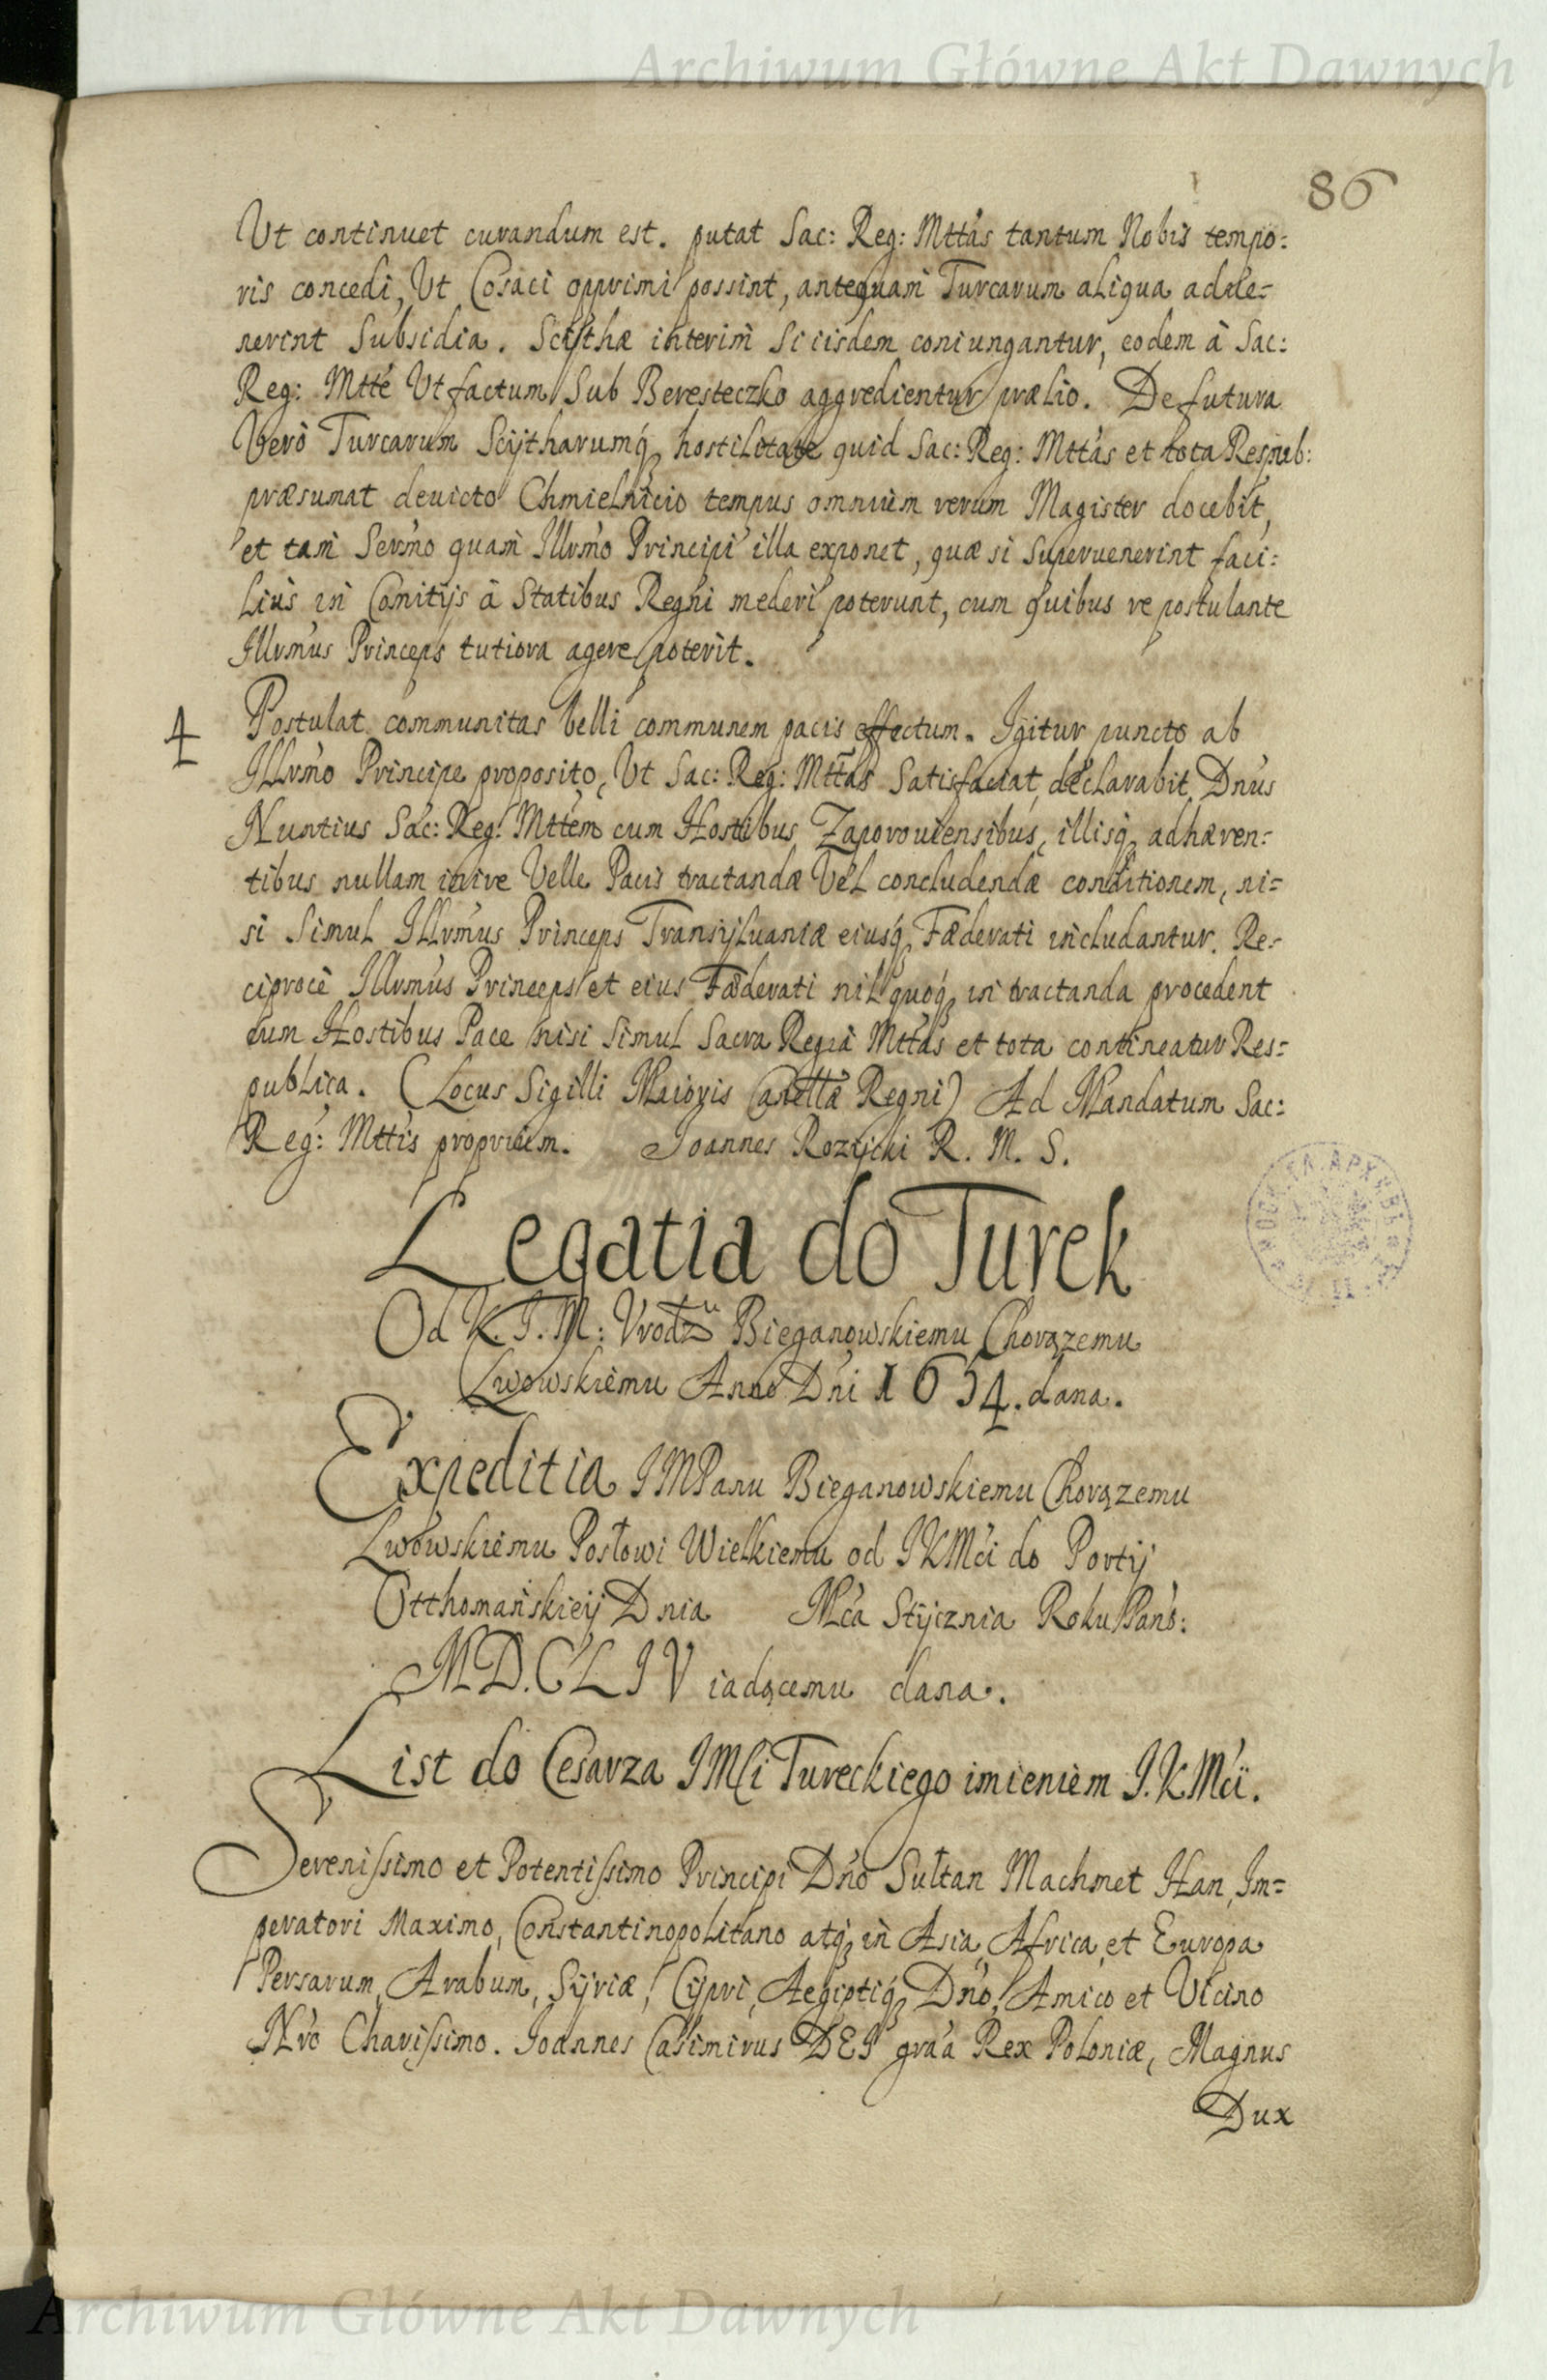 Archiwum Główne Akt Dawnych
86
Ut continuet curandum est. putat Sac: Reg: Mttás tantum Nobis tempo:
ris concedi, Ut Cosaci opprimi possint, antequam Turcarum aliqua adue=
nerint Subsidia. Scythæ interim si iisdem coniungantur, eodem à Sac:
Reg: Mtté Ut factum Sub Beresteczko aggredientur prælio. De futura
Verò Turcarum Scÿtharumq́; hostilitate quid Sac: Reg: Mttás et tota Respub:
præsumat deuicto Chmielnicio tempus omnium rerum Magister docebit,
et tam Sermo quam Illrmo Principi illa exponet, quæ si superuenerint faci:
lius in Comitijs à Statibus Regni mederi poterunt, cum quibus re postulante
Illrmus Princeps tutiora agere poterit.
4 Postulat communitas belli communem pacis effectum. Igitur puncto ab
Illrmo Principe proposito, Ut Sac: Reg: Mttas Satisfaciat, declarabit Dnus
Nuntius Sac: Reg: Mttem cum Hostibus Zaporouiensibus, illisq́; adhæren=
tibus nullam inire Velle Pacis tractandæ Vel concludendæ conditionem, ni=
si Simul Illrmus Princeps Transÿluaniæ eiusq́; Fæderati includantur. Re=
ciprocè Illrmus Princeps et eius Fæderati nil quoq́; in tractanda procedent
cum Hostibus Pace nisi Simul Sacra Regia Mttás et tota contineatur Res=
publica. (Locus Sigilli Maioris Cancellæ Regni) Ad Mandatum Sac:
Reg: Mttis proprium. Joannes Rozÿcki R. M. S.
Legatia do Turek
Od K. J. M: Vrodzu Bieganowskiemu Chorązemu
Lwowskiemu Anno Dni 1654. dana.
Expeditia JMPanu Bieganowskiemu Chorązemu
Lwowskiemu Posłowi Wielkiemu od JKMći do Portÿ
Otthomańskieÿ Dnia Mća Stÿcznia Roku Páno:
M.D.C.L I V iadącemu dana.
List do Cesarza JMći Tureckiego imieniem J.K.Mći.
Serenissimo et Potentissimo Principi Dńo Sułtan Machmet Han, Im=
peratori Maximo, Constantinopolitano atq́; in Asia, Africa, et Europa
Persarum, Arabum, Sÿriæ, Cÿpri, Aegiptiq́; Dńo, Amico et Vicino
Nro Charissimo. Joannes Casimirus DEI graa Rex Poloniæ, Magnus
Dux
Archiwum Główne Akt Dawnych